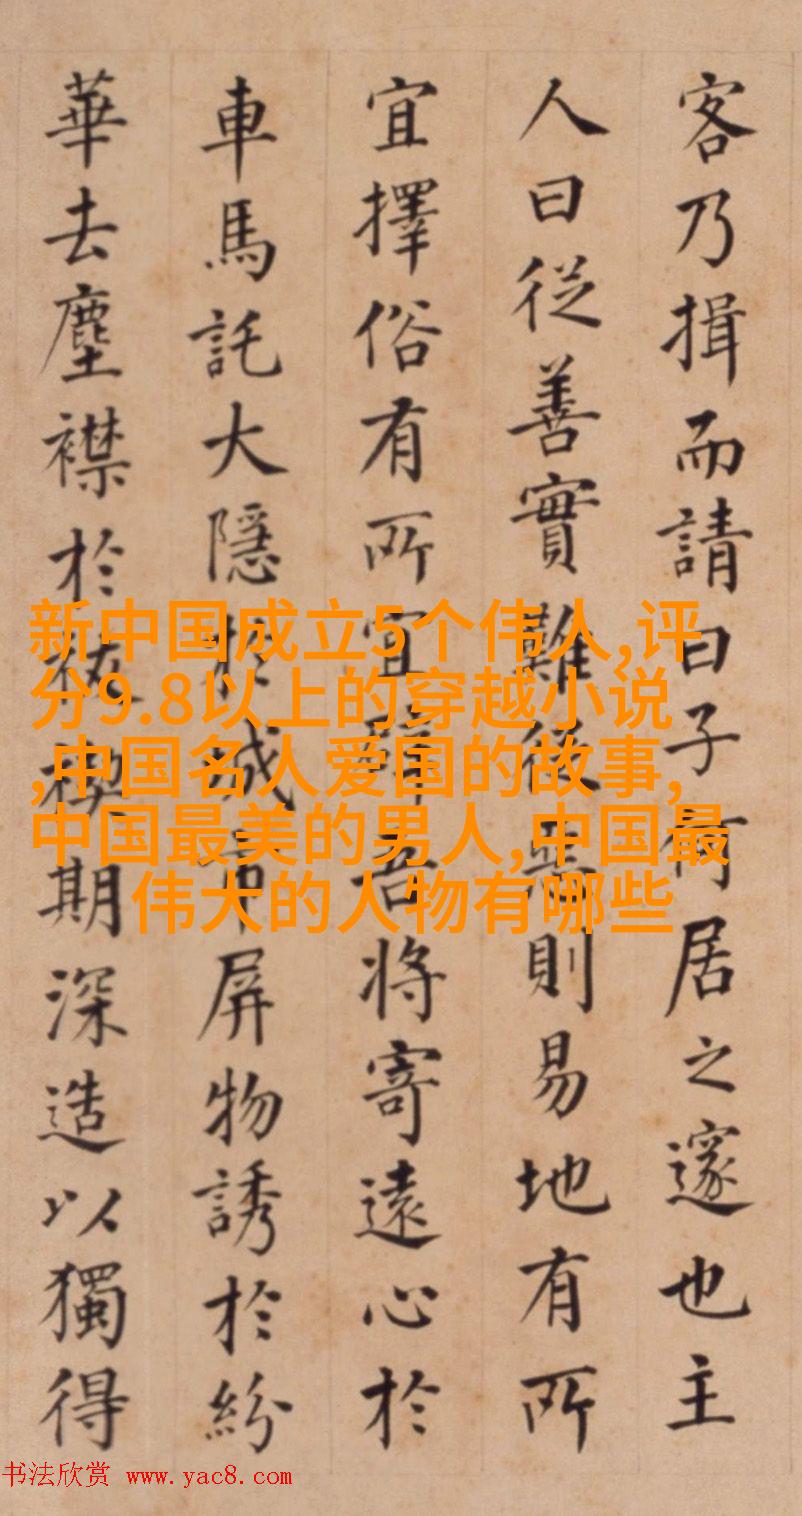 客乃揖而請曰子何居之邃也主
人曰従善實難従則易地有所
宜擇俗有所宜吾将寄遠心於
車馬託大隱於城市屏物誘於紛
華去塵襟於禊期深造以獨得
新中国成立5个伟人,评
分9.8以上的穿越小说
,中国名人爱国的故事,
中国最美的男人,中国最
伟大的人物有哪些
书法欣赏 www.yac8.com